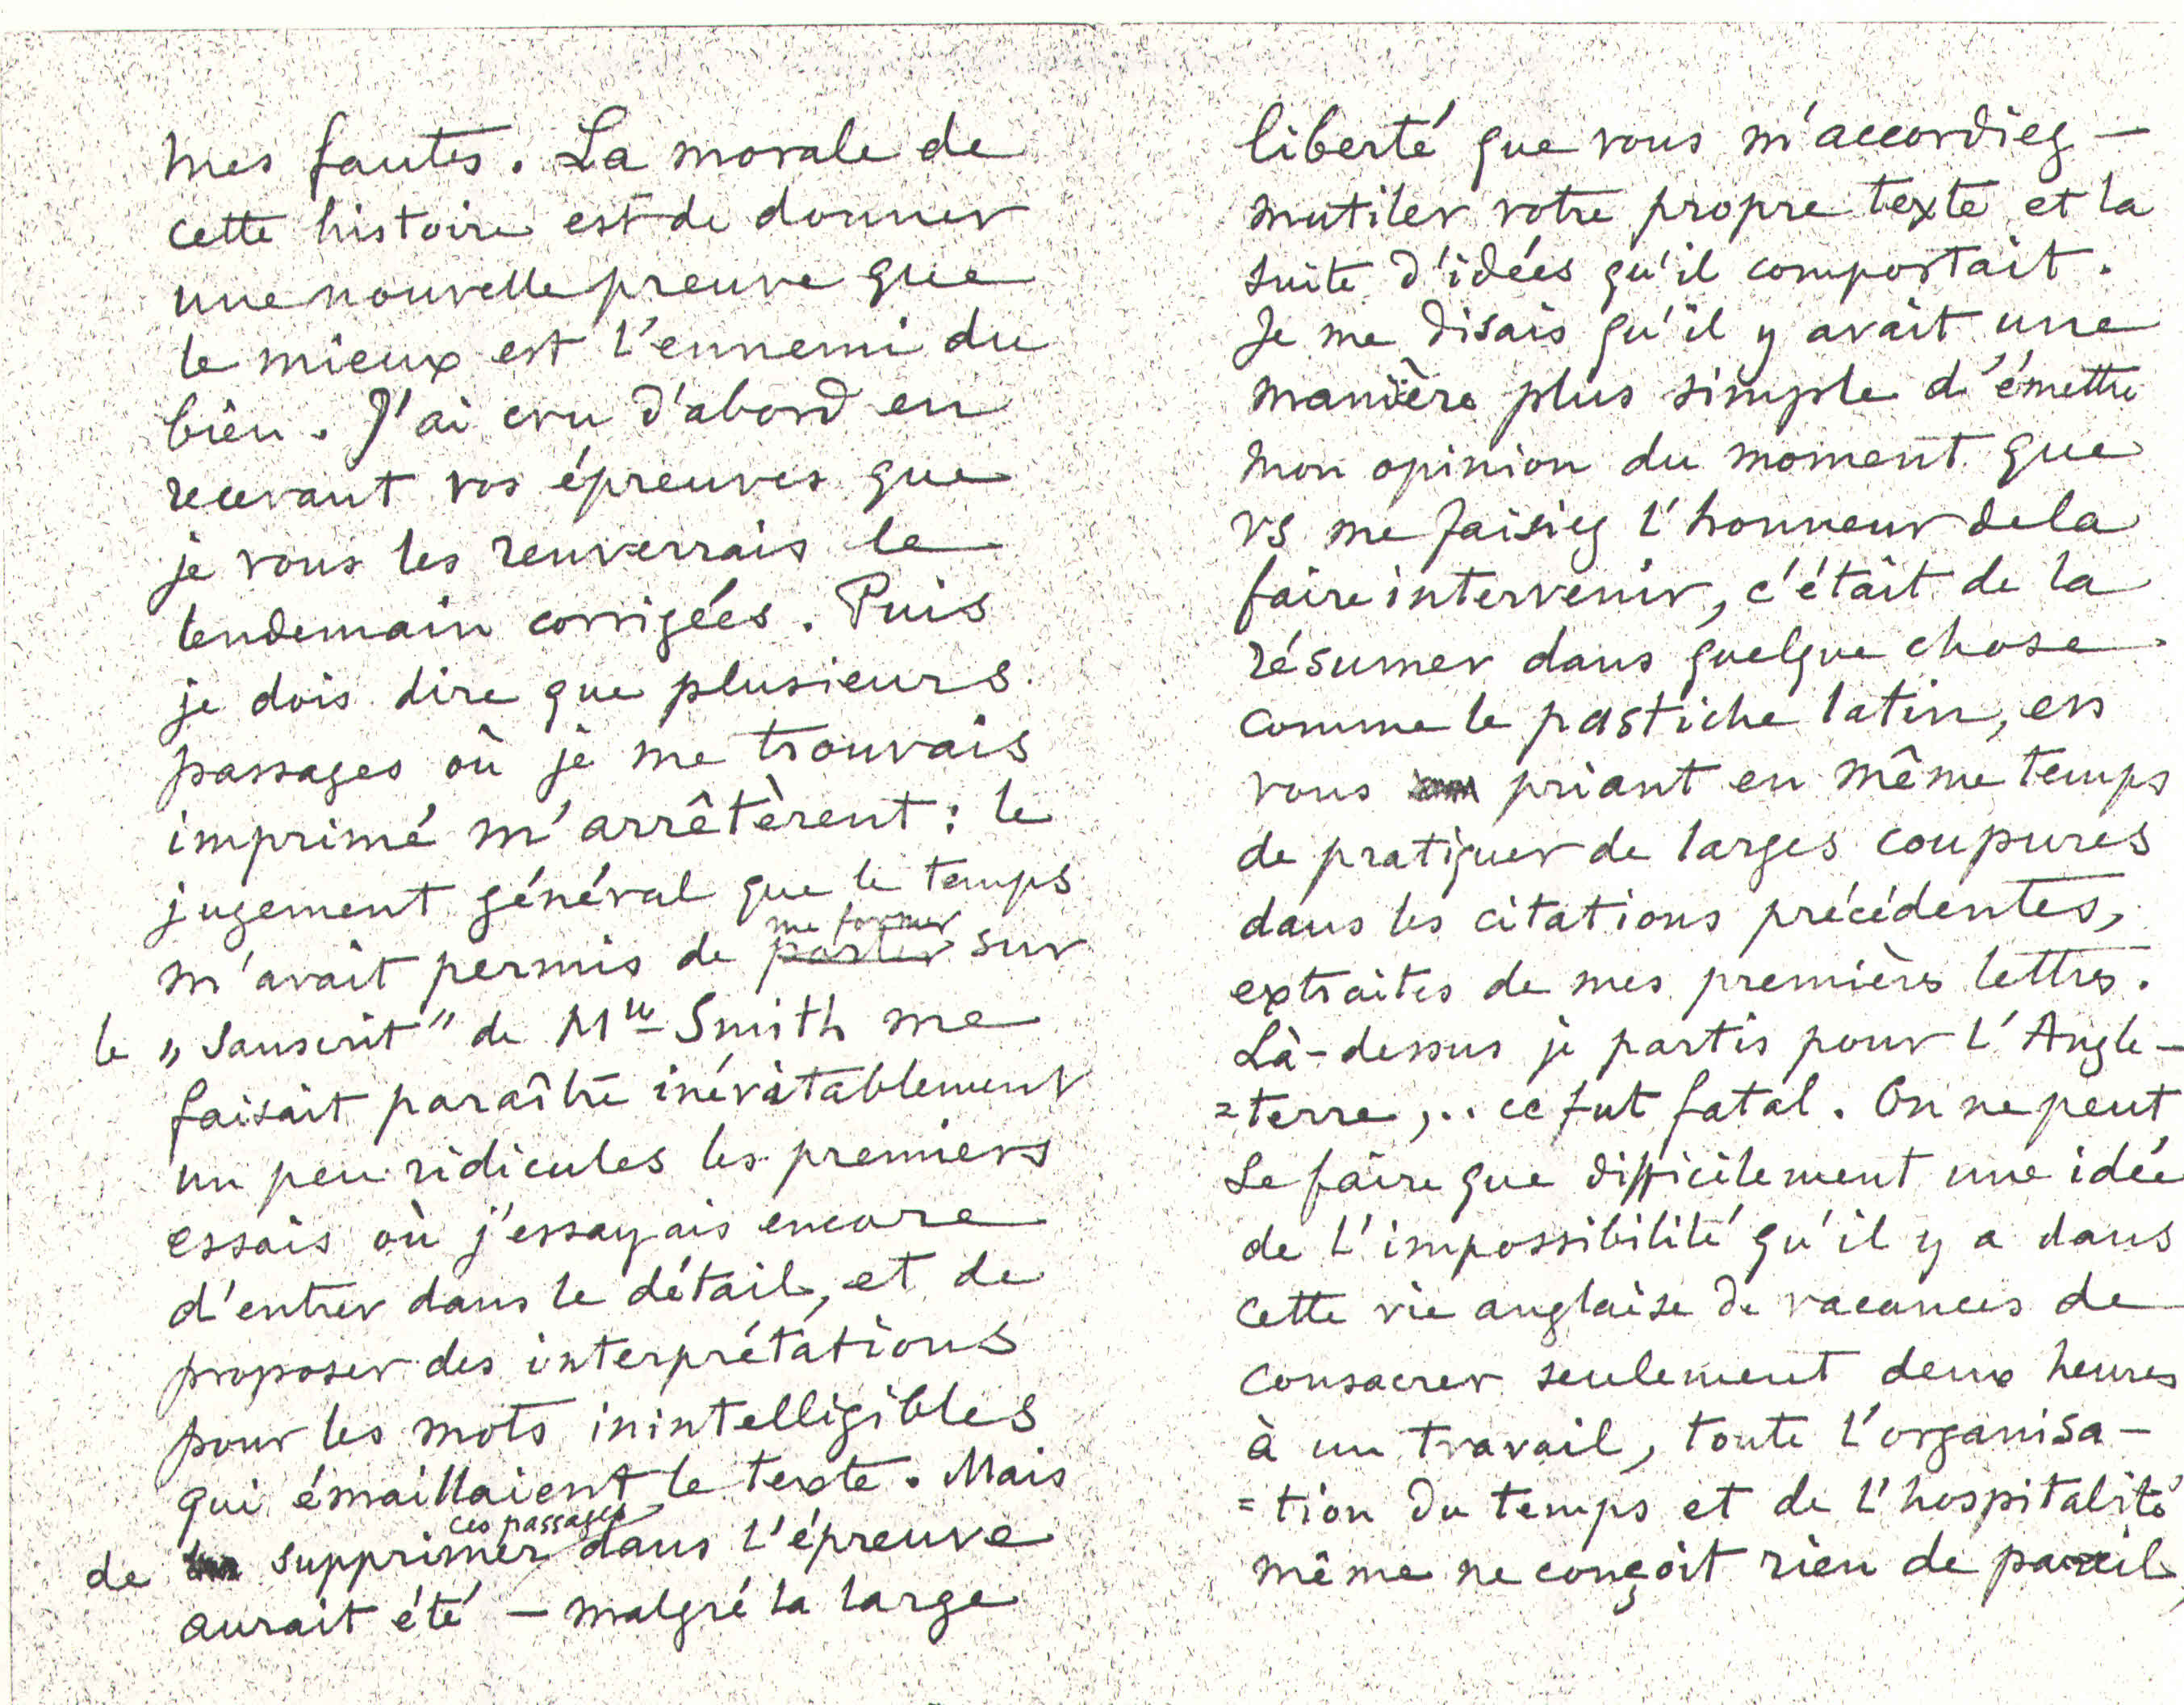 mes fautes. La morale de
cette histoire est de donner
une nouvelle preuve que
le mieux est l'ennemi du
bien. J'ai cru d'abord en
recevant vos épreuves que
je vous les renverrais le
lendemain corrigées. Puis
je dois dire que plusieurs
passages où je me trouvais
imprimé m'arrêtèrent : le
jugement général que le temps
me former
m'avait permis de porter sur
le „Sanscrit" de Mlle Smith me
faisait paraître inévitablement
un peu ridicules les premiers
essais où j'essayais encore
d'entrer dans le détail, et de
proposer des interprétations
pour les mots inintelligibles
qui émaillaient le texte. Mais
ces passages
de supprimer dans l'épreuve
aurait été – malgré la large
liberté que vous m'accordiez –
mutiler votre propre texte et la
suite d'idées qu'il comportait.
Je me disais qu'il y avait une
manière plus simple d'émettre
mon opinion du moment que
vs me faisiez l'honneur de la
faire intervenir, c'était de la
résumer dans quelque chose
comme le pastiche latin, en
vous priant en même temps
de pratiquer de larges coupures
dans les citations précédentes,
extraites de mes premières lettres.
Là-dessus je partis pour l'Angle-
=terre,.. ce fut fatal. On ne peut
se faire que difficilement une idée
de l'impossibilité qu'il y a dans
cette vie anglaise de vacances de
consacrer seulement deux heures
à un travail, toute l'organisa-
=tion du temps et de l'hospitalité
même ne conçoit rien de pareil,